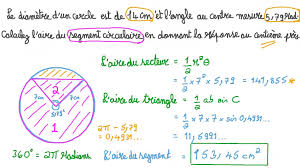 Le diamètre d'un cercle est de 14 cm et l'angle au centre mesure 5,79 Rad.
Calculez l'aire du segment circulaire en donnant la réponse au centième près
L'aire du secteur = 1/2 r² θ
= 1/2 × 7² × 5,79 = 141,855
L'aire du triangle = 1/2 ab sin C
= 1/2 × 7 × 7 × sin 0,4931...
= 11,5991...
2π − 5,79
= 0,4931...
2
7cm
7cm
5,79
1
360° = 2π Radians
L'aire du segment = 153,45 cm²